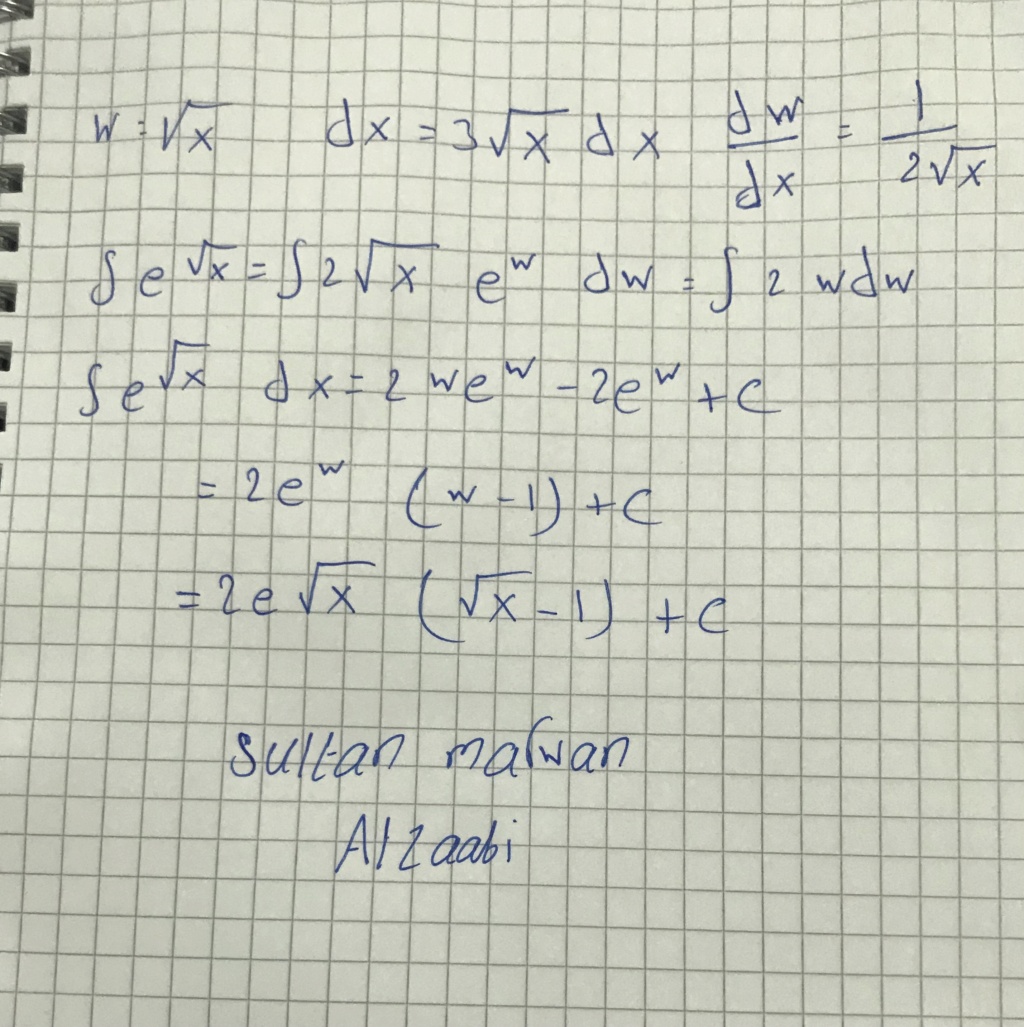 w = √x dx = 3√x dx dw/dx = 1/(2√x)
∫e^√x = ∫2√x e^w dw = ∫2 wdw
∫e^√x dx = 2 we^w - 2e^w + c
= 2e^w (w - 1) + c
= 2e √x (√x - 1) + c
Sultan marwan
Alzaabi